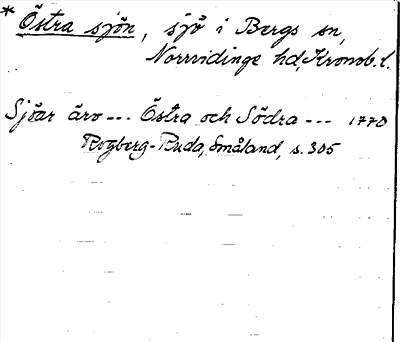 * Östra sjön, sjö i Bergs sn,
Norrvidinge hd, Kronob. l.
Sjöar äro --- Östra och Södra --- 1770
Rogberg-Ruda, Småland, s. 305